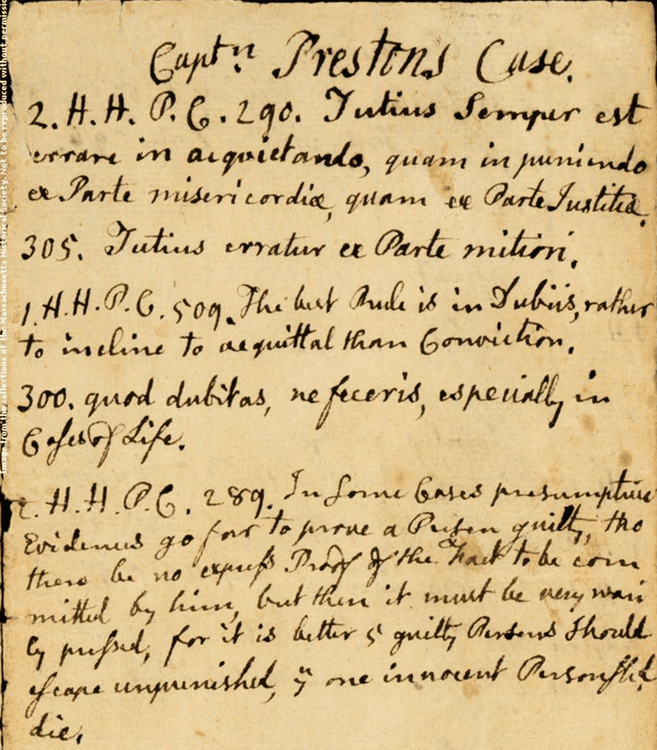 Captn. Prestons Case.
2. H. H. P. C. 290. Tutius Semper est
errare in acquietando, quam in puniendo
ex Parte misericordiæ, quam ex Parte Justitiæ.
305. Tutius erratur ex Parte mitiori.
1. H. H. P. C. 509. The best Rule is in Dubiis, rather
to incline to acquittal than Conviction.
300. quod dubitas, ne feceris, especially in
Cases of Life.
2. H. H. P. C. 289. In Some Cases presumptive
Evidences go far to prove a Person guilty, tho
there be no express Proof of the Fact to be com
mitted by him, but then it must be very wari
ly pressed, for it is better 5 guilty Persons Should
escape unpunished, yn one innocent Person Shd.
die.
Image from the collections of the Massachusetts Historical Society. Not to be reproduced without permissio